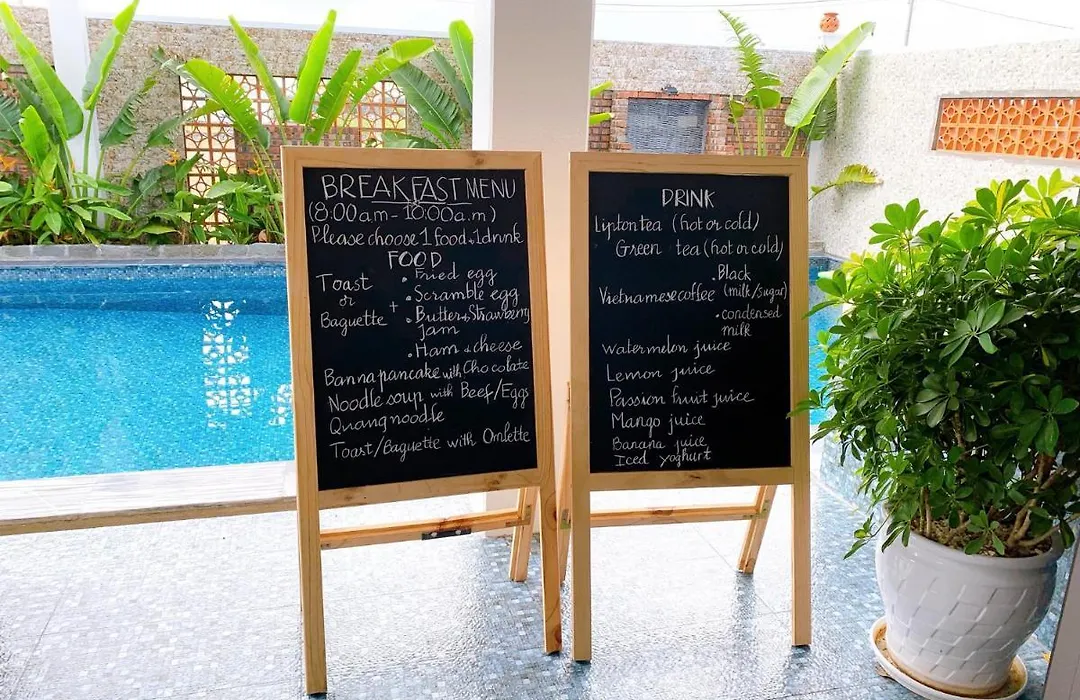 BREAKFAST MENU
(8:00am - 10:00a.m)
Please choose 1 food + 1 drink
FOOD
Toast
or
Baguette
+
• Fried egg
• Scramble egg
• Butter + Strawberry
Jam
• Ham + cheese
Banna pancake with Chocolate
Noodle soup with Beef/Eggs
Quang noodle
Toast/Baguette with Omlette
DRINK
Lipton tea (hot or cold)
Green tea (hot or cold)
Vietnamese coffee
• Black
(milk/sugar)
• condensed
milk
Watermelon juice
Lemon juice
Passion fruit juice
Mango juice
Banana juice
Iced yoghurt